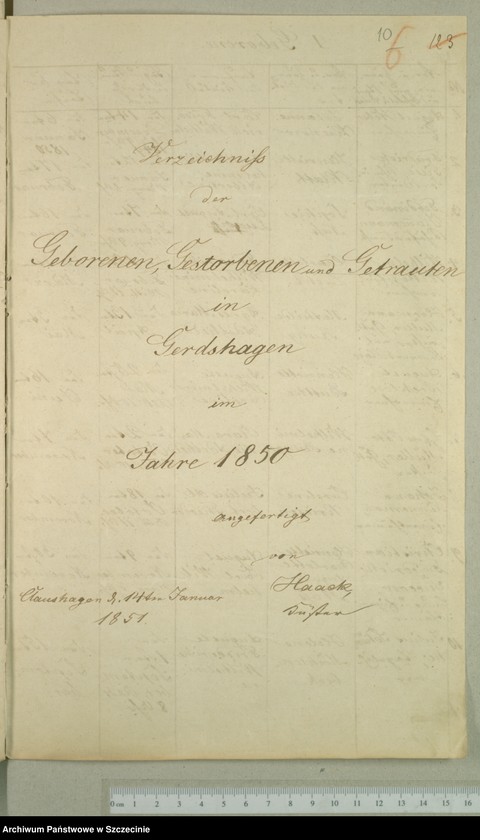 10 6 123
Verzeichniss
der
Geborenen, Gestorbenen und Getrauten
in
Gerdshagen
im
Jahre 1850
angefertigt
von
Haack,
Küster
Claushagen d. 14ten Januar
1851.
0 cm 1 2 3 4 5 6 7 8 9 10 11 12 13 14 15 16
Archiwum Państwowe w Szczecinie